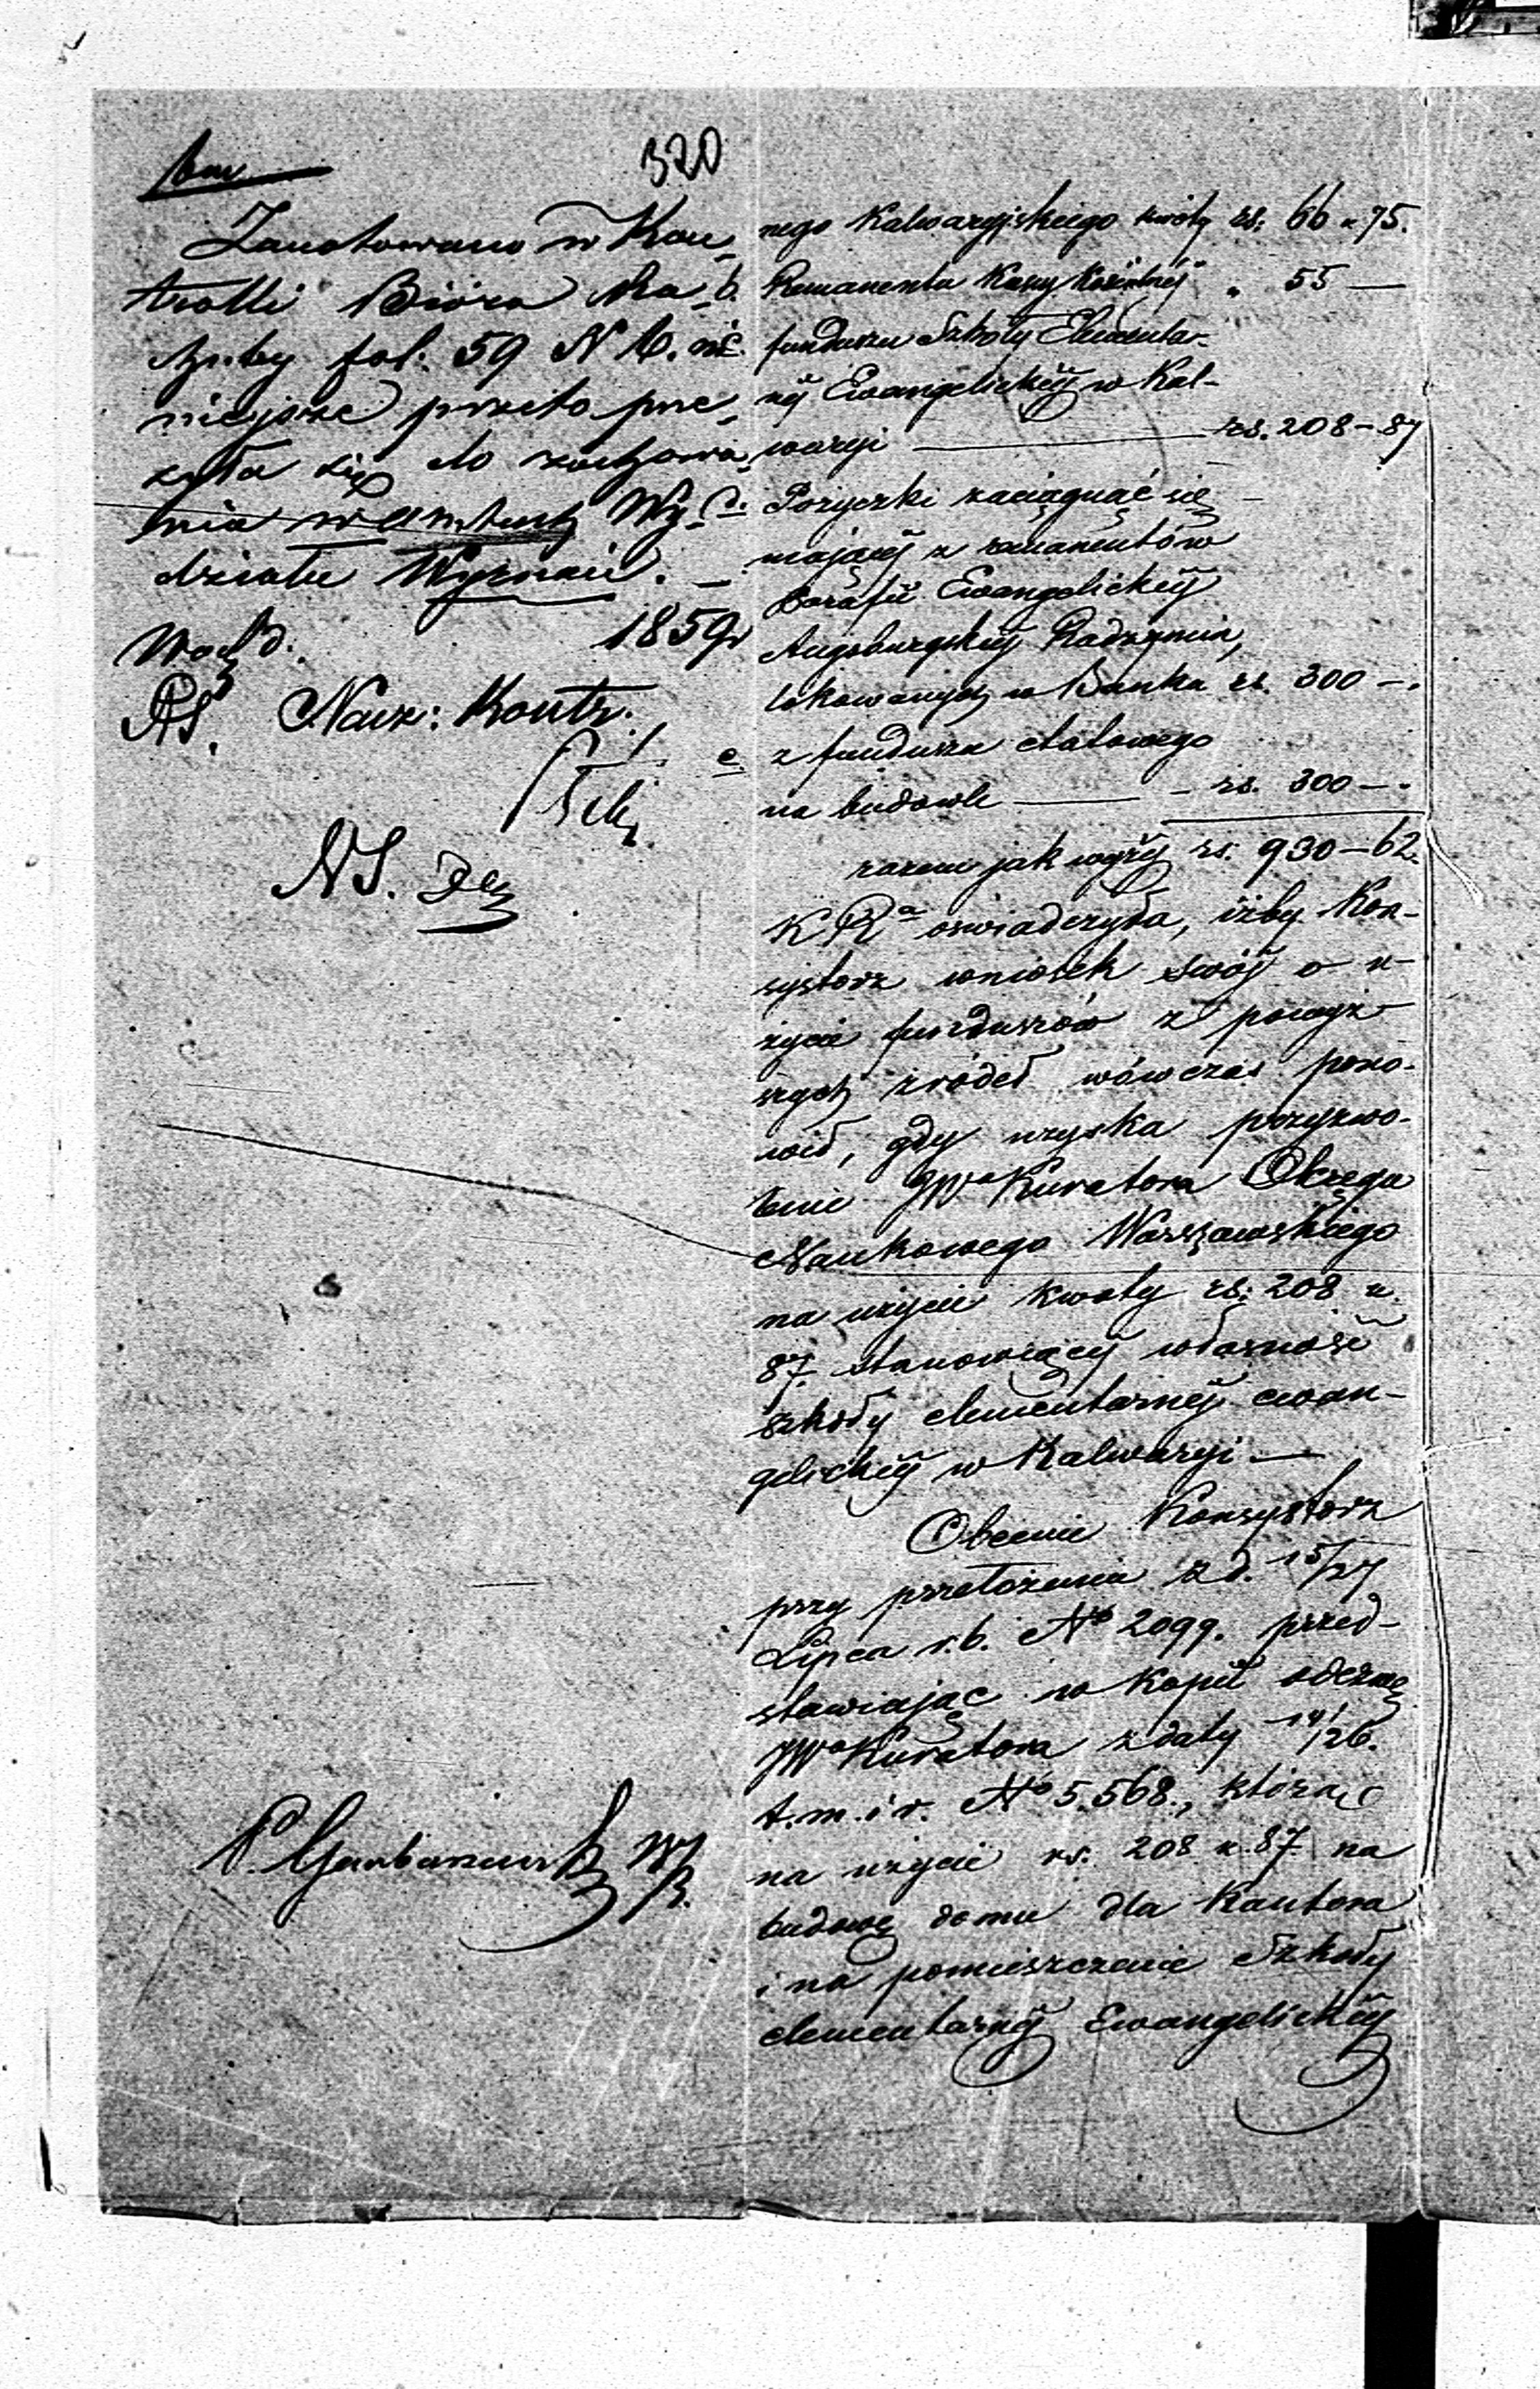 320
Zanotowano w Kon-
trolli Bióra
fol: 59 N 6.
niejsze przeto prze-
syła się do zachowa-
nia w Aktach Wy-
działu Wyznań. —
1859 r
Nacz: Kontr.
NS.
nego Kalwaryjskiego kwoty rs: 66 k 75.
b. Remanentu Kassy Kościelnéj „ 55 —
funduszu Szkoły Elementar-
néj Ewangelickiéj w Kal-
waryi — rs. 208 — 87
d. Pożyczki zaciągnąć się
mającéj z remanentów
Parafii Ewangelickiéj
Augsburgskiéj Radzymin,
lokowanych w Banku rs. 300 — .
e. z funduszu etatowego
na budowle — rs. 300 — .
razem jak wyżéj rs. 930 — 62.
K Ra oświadczyła, iżby Kon-
systorz wniosek swój o u-
życie funduszów z powyż-
szych źródeł wówczas pono-
wił, gdy uzyska przyzwo-
lenie JWo Kuratora Okręgu
Naukowego Warszawskiego
na użycie kwoty rs: 208 k.
87. stanowiącéj własność
szkoły elementarnéj ewan-
gelickiéj w Kalwaryi —
Obecnie Konsystorz
przy przełożeniu z d. 15/27
Lipca r.b. No 2099. przed-
stawiając w kopii odezwę
JWo Kuratora z daty 14/26.
t.m.i r. No 5.568., którą
na użycie rs. 208 k. 87 na
budowę domu dla Kantora
i na pomieszczenie Szkoły
elementarnéj Ewangelickiéj